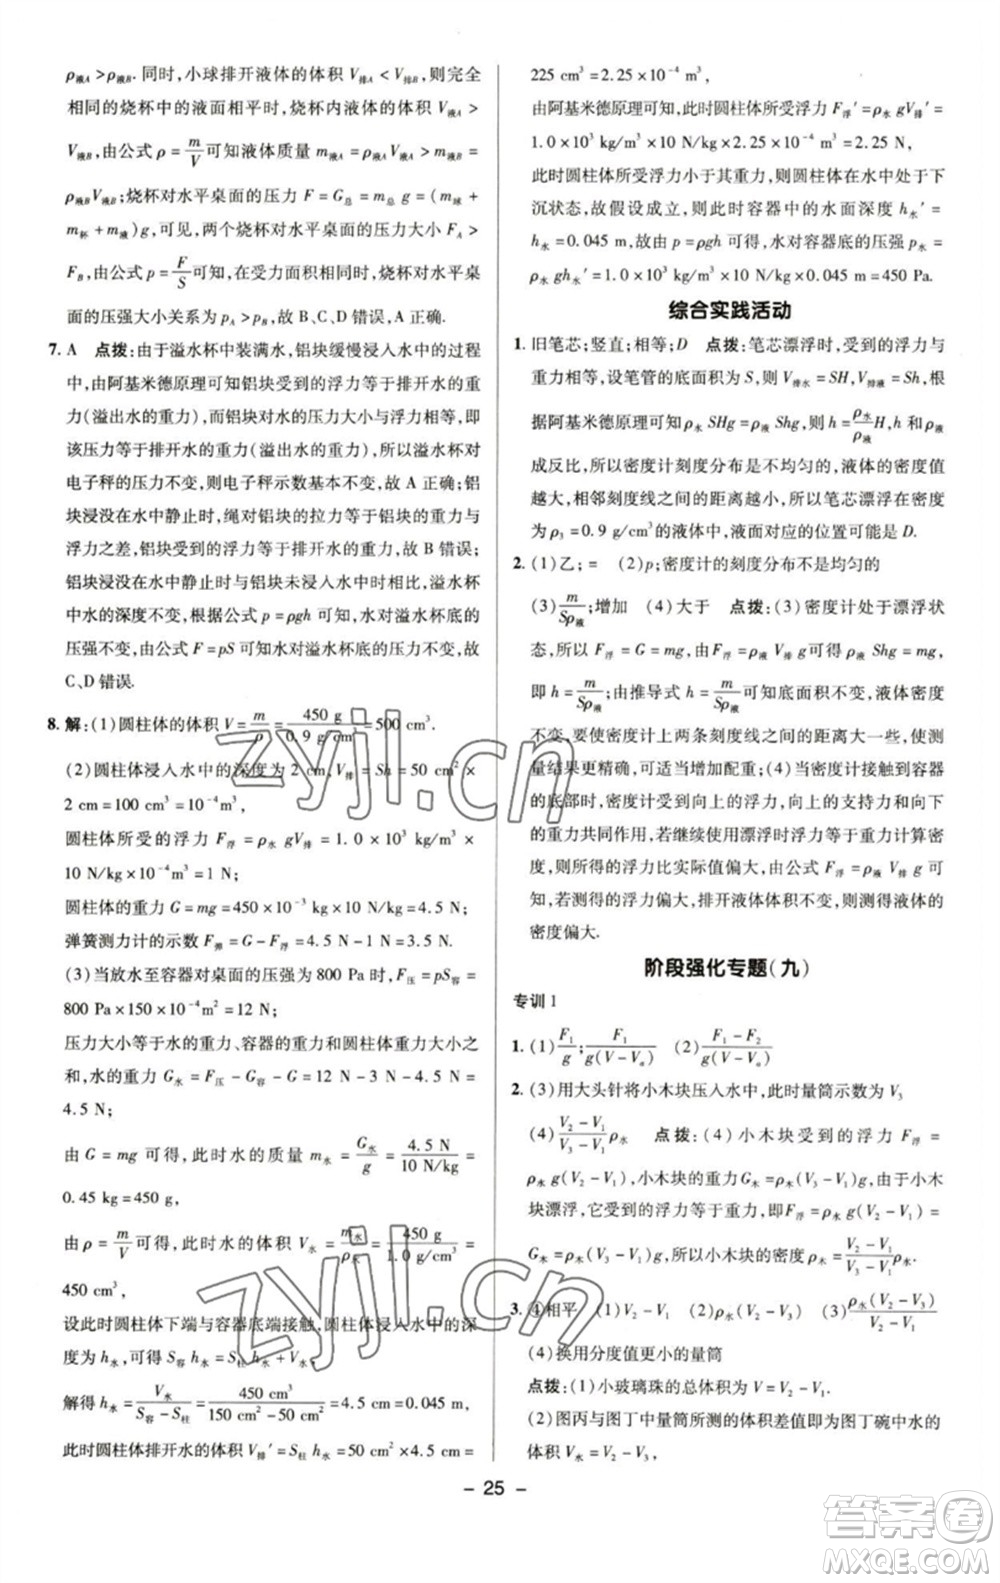 ρ液A＞ρ液B. 同时,小球排开液体的体积 V排A＜V排B,则完全
相同的烧杯中的液面相平时,烧杯内液体的体积 V液A＞
V液B,由公式 ρ = m/V 可知液体质量 m液A = ρ液A V液A＞m液B =
ρ液B V液B;烧杯对水平桌面的压力 F = G总 = m总 g = (m球 +
m杯 + m液)g,可见,两个烧杯对水平桌面的压力大小 FA＞
FB,由公式 p = F/S 可知,在受力面积相同时,烧杯对水平桌
面的压强大小关系为 pA＞pB,故 B、C、D 错误,A 正确.
7. A 点拨:由于溢水杯中装满水,铝块缓慢浸入水中的过程
中,由阿基米德原理可知铝块受到的浮力等于排开水的重力
(溢出水的重力),而铝块对水的压力大小与浮力相等,即
该压力等于排开水的重力(溢出水的重力),故溢水杯对
电子秤的压力不变,则电子秤示数基本不变,故 A 正确;铝
块浸没在水中静止时,绳对铝块的拉力等于铝块的重力与
浮力之差,铝块受到的浮力等于排开水的重力,故 B 错误;
铝块浸没在水中静止时与铝块未浸入水中时,溢水杯
中水的深度不变,根据公式 p = ρgh 可知,水对溢水杯底的
压强不变,由公式 F = pS 可知水对溢水杯底的压力不变,故
C、D 错误.
8. 解:(1)圆柱体的体积 V = m/ρ = 450 g/0.9 g/cm³ = 500 cm³.
(2)圆柱体浸入水中的深度为 2 cm,V排 = Sh = 50 cm² ×
2 cm = 100 cm³ = 10⁻⁴ m³,
圆柱体所受的浮力 F浮 = ρ水 gV排 = 1.0 × 10³ kg/m³ ×
10 N/kg × 10⁻⁴ m³ = 1 N;
圆柱体的重力 G = mg = 450 × 10⁻³ kg × 10 N/kg = 4.5 N;
弹簧测力计的示数 F弹 = G − F浮 = 4.5 N − 1 N = 3.5 N.
(3)当放水至容器对桌面的压强为 800 Pa 时,F压 = pS容 =
800 Pa × 150 × 10⁻⁴ m² = 12 N;
压力大小等于水的重力、容器的重力和圆柱体的重力之
和,此时水的重力 G水 = F压 − G容 − G = 12 N − 3 N − 4.5 N =
4.5 N,
由 G = mg 可得,此时水的质量 m水 = G水/g = 4.5 N/10 N/kg =
0.45 kg = 450 g,
由 ρ = m/V 可得,此时水的体积 V水 = m水/ρ水 = 450 g/1.0 g/cm³ =
450 cm³,
设此时圆柱体下端与容器底端接触,圆柱体浸入水中的深
度为 h水,可得 S容 h水 = S柱 h水 + V水,
解得 h水 = V水/S容 − S柱 = 450 cm³/150 cm² − 50 cm² = 4.5 cm = 0.045 m,
此时圆柱体排开水的体积 V排′ = S柱 h水 = 50 cm² × 4.5 cm =
225 cm³ = 2.25 × 10⁻⁴ m³,
由阿基米德原理可知,此时圆柱体所受浮力 F浮′ = ρ水 gV排′ =
1.0 × 10³ kg/m³ × 10 N/kg × 2.25 × 10⁻⁴ m³ = 2.25 N,
此时圆柱体所受浮力小于其重力,圆柱体在水中处于下
沉状态,故假设成立,则此时容器中的水面深度 h水′ =
h水 = 0.045 m,由 p = ρgh 可得,水对容器底的压强 p水 =
ρ水 gh水′ = 1.0 × 10³ kg/m³ × 10 N/kg × 0.045 m = 450 Pa.
综合实践活动
1. 旧笔芯;竖直;相等;D 点拨:笔芯漂浮时,受到的浮力与
重力相等,设笔管的底面积为 S,则 V排水 = SH,V排液 = Sh,根
据阿基米德原理可知,ρ水 SHg = ρ液 Shg,则 h = ρ水/ρ液 H,h 和 ρ液
成反比,所以密度计刻度分布是不均匀的,液体的密度值
越大,相邻刻度线之间的距离越小,所以笔芯漂浮在密度
为 ρ3 = 0.9 g/cm³ 的液体中,液面对应的位置可能是 D.
2. (1)乙; = (2)p;密度计的刻度分布不是均匀的
(3) m/Sρ液;增加 (4)大于 点拨:(3)密度计处于漂浮状
态,所以 F浮 = G = mg,所以 F浮 = ρ液 V排 g = ρ液 Shg = mg,
即 h = m/Sρ液,由推导式 h = m/Sρ液 可知底面积不变,液体密度
不变,要使密度计上两条刻度线之间的距离大一些,使测
量结果更精确,可以适当增加配重;(4)当密度计接触到容器
的底部时,密度计受到向上的浮力,向上的支持力和向下
的重力共同作用,若继续用漂浮时浮力等于重力计算密
度,则所得的浮力比实际值偏大,由公式 F浮 = ρ液 V排 g 可
知,液体密度也会偏大,排开液体体积不变,所得液体的
密度偏大.
阶段强化专题(九)
专训 1
1. (1) F1/g; F1/g(V − Va) (2) F1 − F2/g(V − Va)
2. (3)用大头针将小木块压入水中,此时量筒示数为 V3
(4) V2 − V1/V3 − V1 ρ水 点拨:(4)小木块受到的浮力 F浮 =
ρ水 g(V2 − V1),小木块的重力 G木 = ρ木 g(V3 − V1)g,由于小木
块漂浮,它受到的浮力等于重力,即 F浮 = ρ水 g(V2 − V1) =
G木 = ρ木(V3 − V1)g,所以小木块的密度 ρ木 = V2 − V1/V3 − V1 ρ水.
3. ④相平 (1)V2 − V1 (2)ρ水(V2 − V3) (3) ρ水(V2 − V3)/V2 − V1
(4)换用分度值更小的量筒
点拨:(1)小玻璃珠的总体积为 V = V2 − V1.
(2)图丙与图丁中量筒所测的体积差值即为图丁碗中水的
体积 V水 = V2 − V3,
zyjl.cn
zyjl.cn
答案圈
MXQE.COM
− 25 −